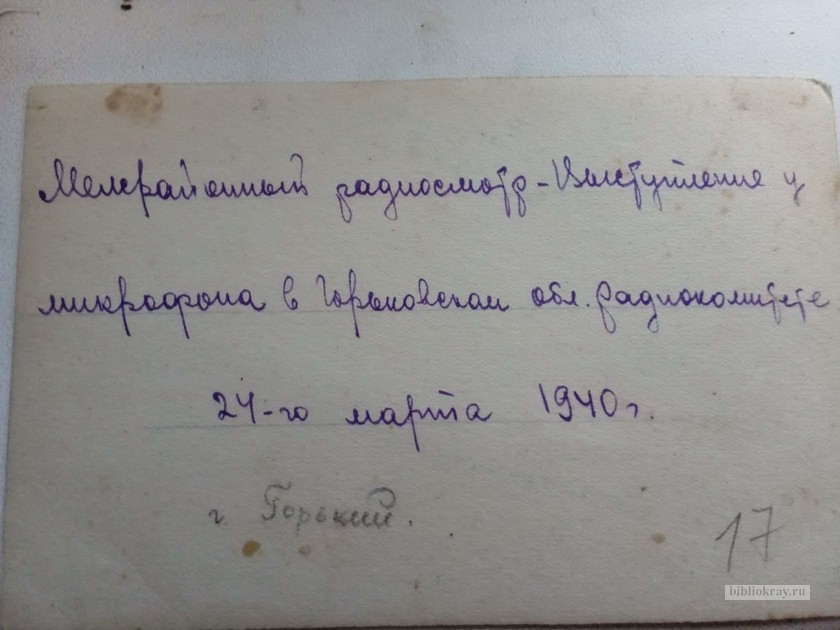 Межрайонный радиосмотр - Выступление у
микрофона в Горьковском обл. радиокомитете
24-го марта 1940 г.
г. Горький.
17
bibliokray.ru